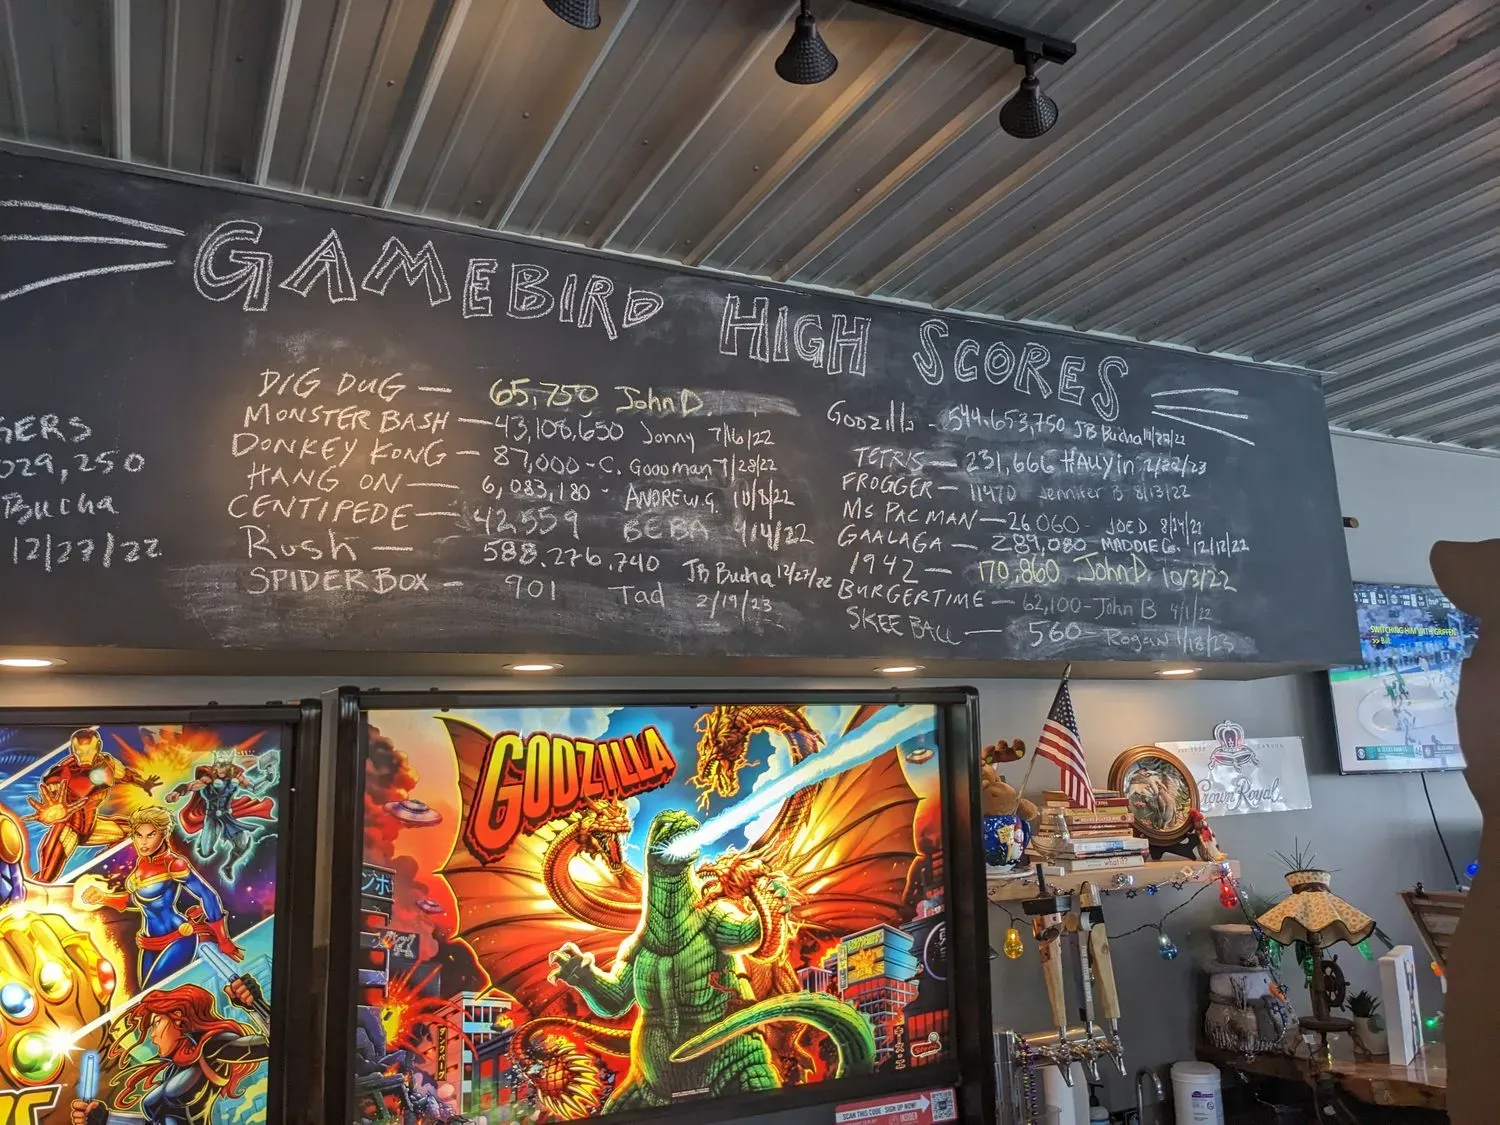 GAMEBIRD HIGH SCORES
GERS
029,250
Bucha
12/27/22
DIG DUG — 65,750 John D.
MONSTER BASH — 43,108,650 Jonny 7/16/22
DONKEY KONG — 87,000 - C. Goodman 7/28/22
HANG ON — 6,083,180 - ANDREW.G. 10/8/22
CENTIPEDE — 42,559 BEBA 4/14/22
Rush — 588.276,740 JB Bucha 12/27/22
SPIDER BOX - 901 Tad 2/19/23
Godzilla - 544.653,750 JB Bucha
TETRIS — 231,666
FROGGER — 11470 Jennifer B 8/13/22
MS PACMAN — 26,060 - JOE D. 8/24/22
GAALAGA — 289,080 MADDIE G. 12/17/22
1942 — 170,860 John D. 10/3/22
BURGERTIME — 62,100 - John B 4/1/22
SKEE BALL — 560 - Rogan 1/18/23
SWITCHING HIM WITH GRIFFEN
GODZILLA
Crown Royal
what if?
SCAN THIS CODE · SIGN UP NOW!
INSIDER